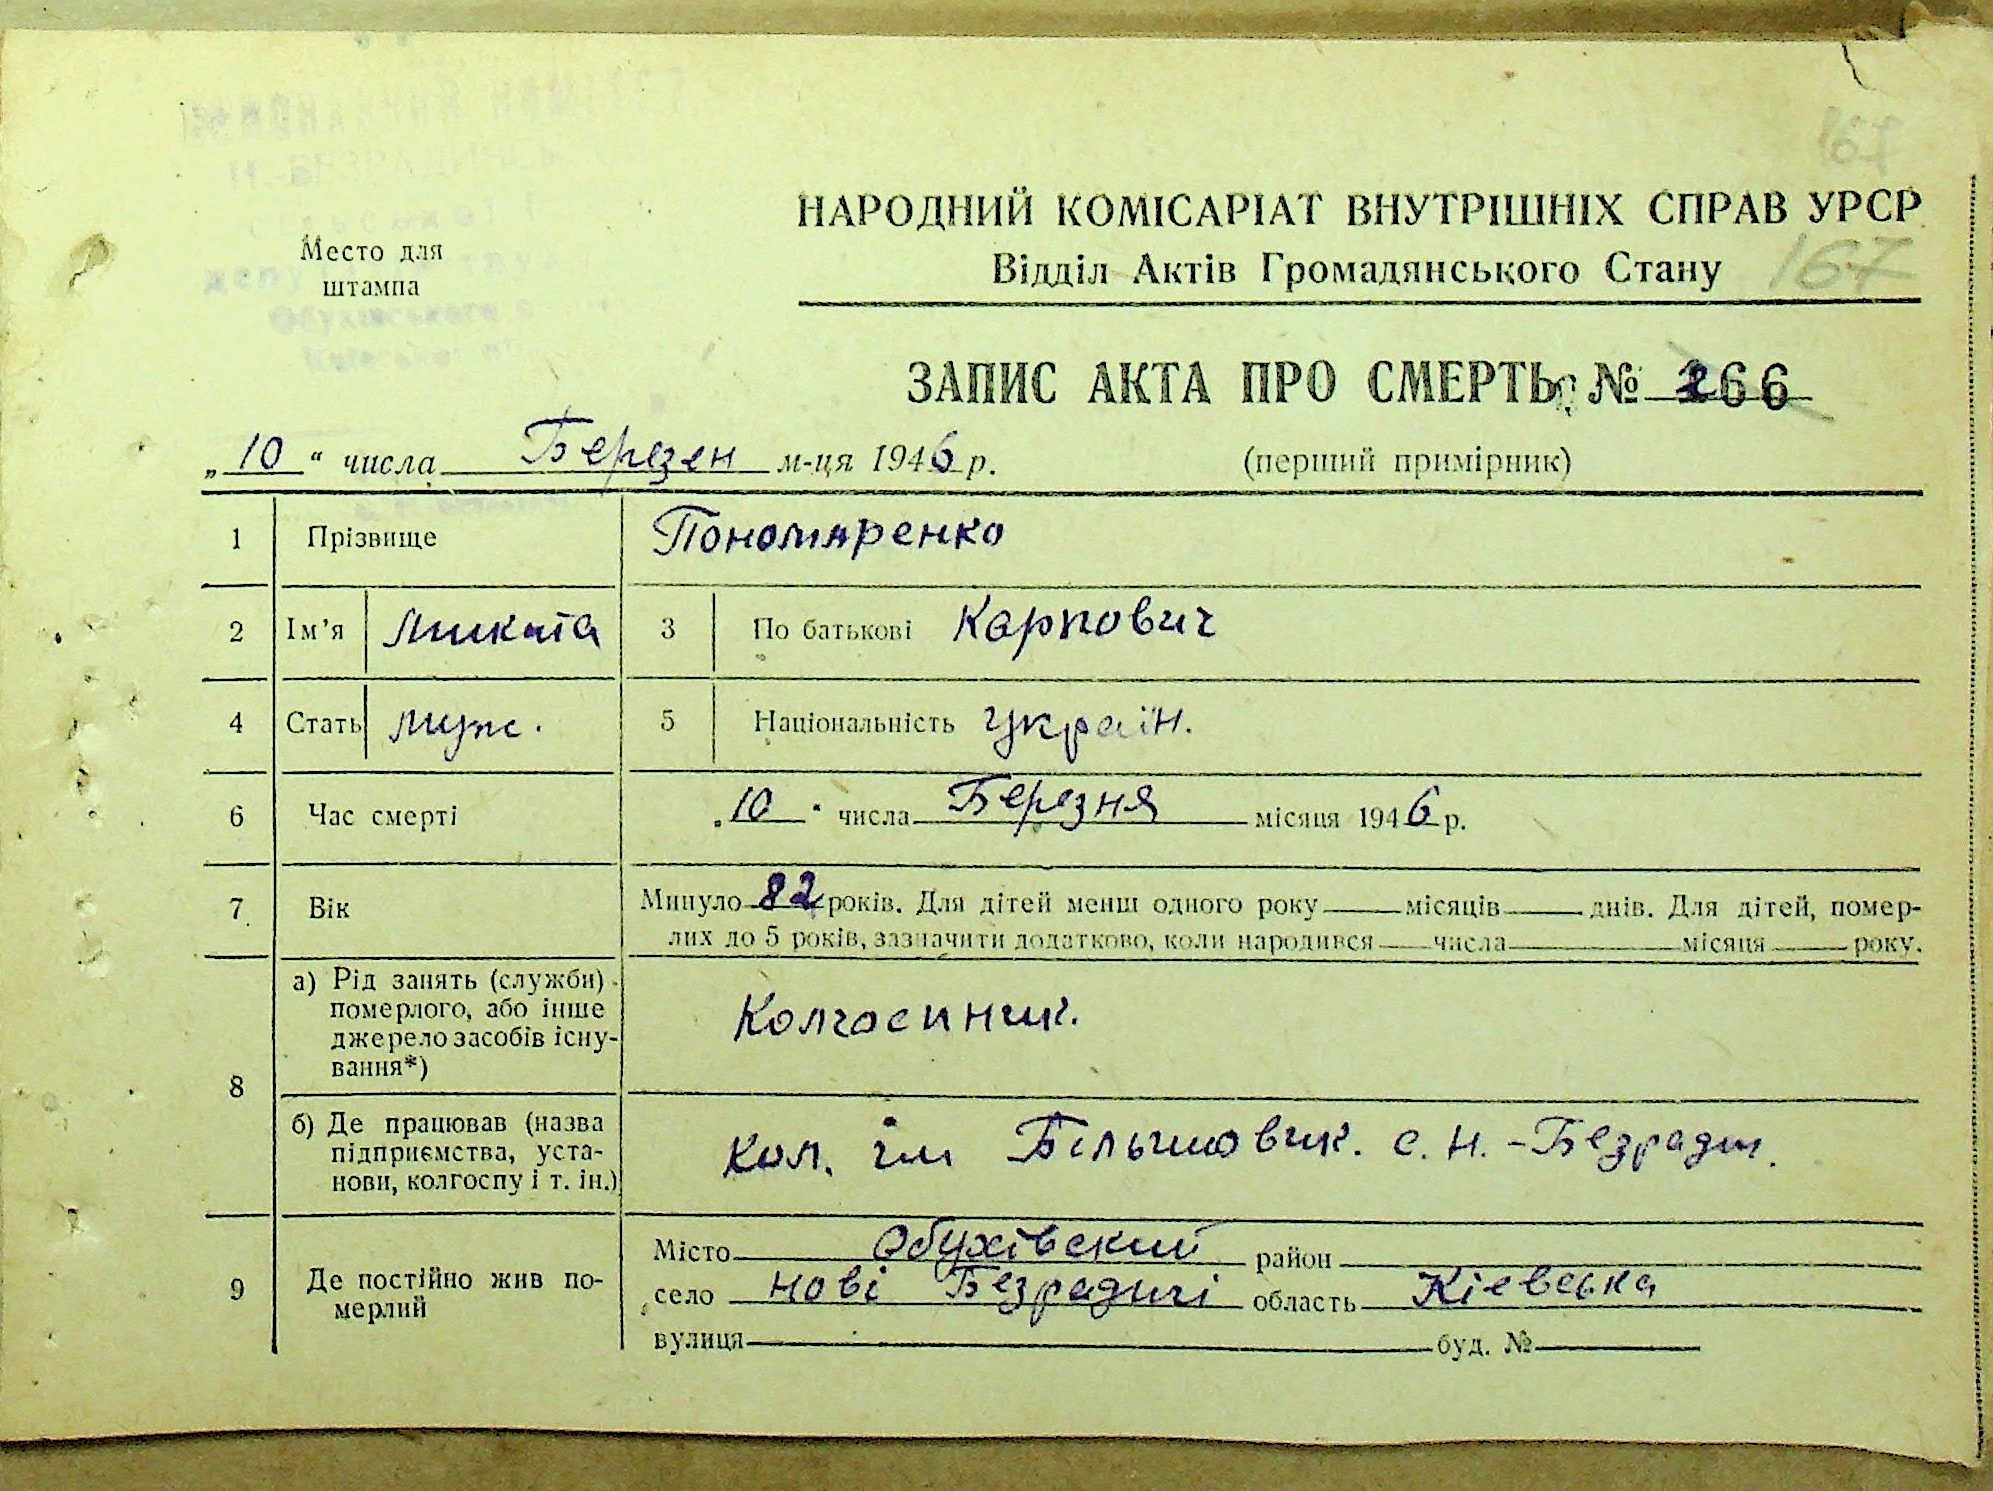 167
НАРОДНИЙ КОМІСАРІАТ ВНУТРІШНІХ СПРАВ УРСР
Место для
штампа
Відділ Актів Громадянського Стану 167
ЗАПИС АКТА ПРО СМЕРТЬ № 266
„10“ числа Березен м-ця 1946 р. (перший примірник)
1 Прізвище Пономаренко
2 Ім’я Микита 3 По батькові Карпович
4 Стать муж. 5 Національність україн.
6 Час смерті „10“ числа Березня місяця 1946 р.
7 Вік Минуло 82 років. Для дітей менш одного року місяців днів. Для дітей, помер-
лих до 5 років, зазначити додатково, коли народився числа місяця року.
8 а) Рід занять (служби)
померлого, або інше
джерело засобів існу-
вання*)
Колгоспник.
б) Де працював (назва
підприємства, уста-
нови, колгоспу і т. ін.)
Кол. ім Більшовик. с. Н.-Безради.
9 Де постійно жив по-
мерлий
Місто Обухівский район
село Нові Безрадичі область Кіевська
вулиця буд. №